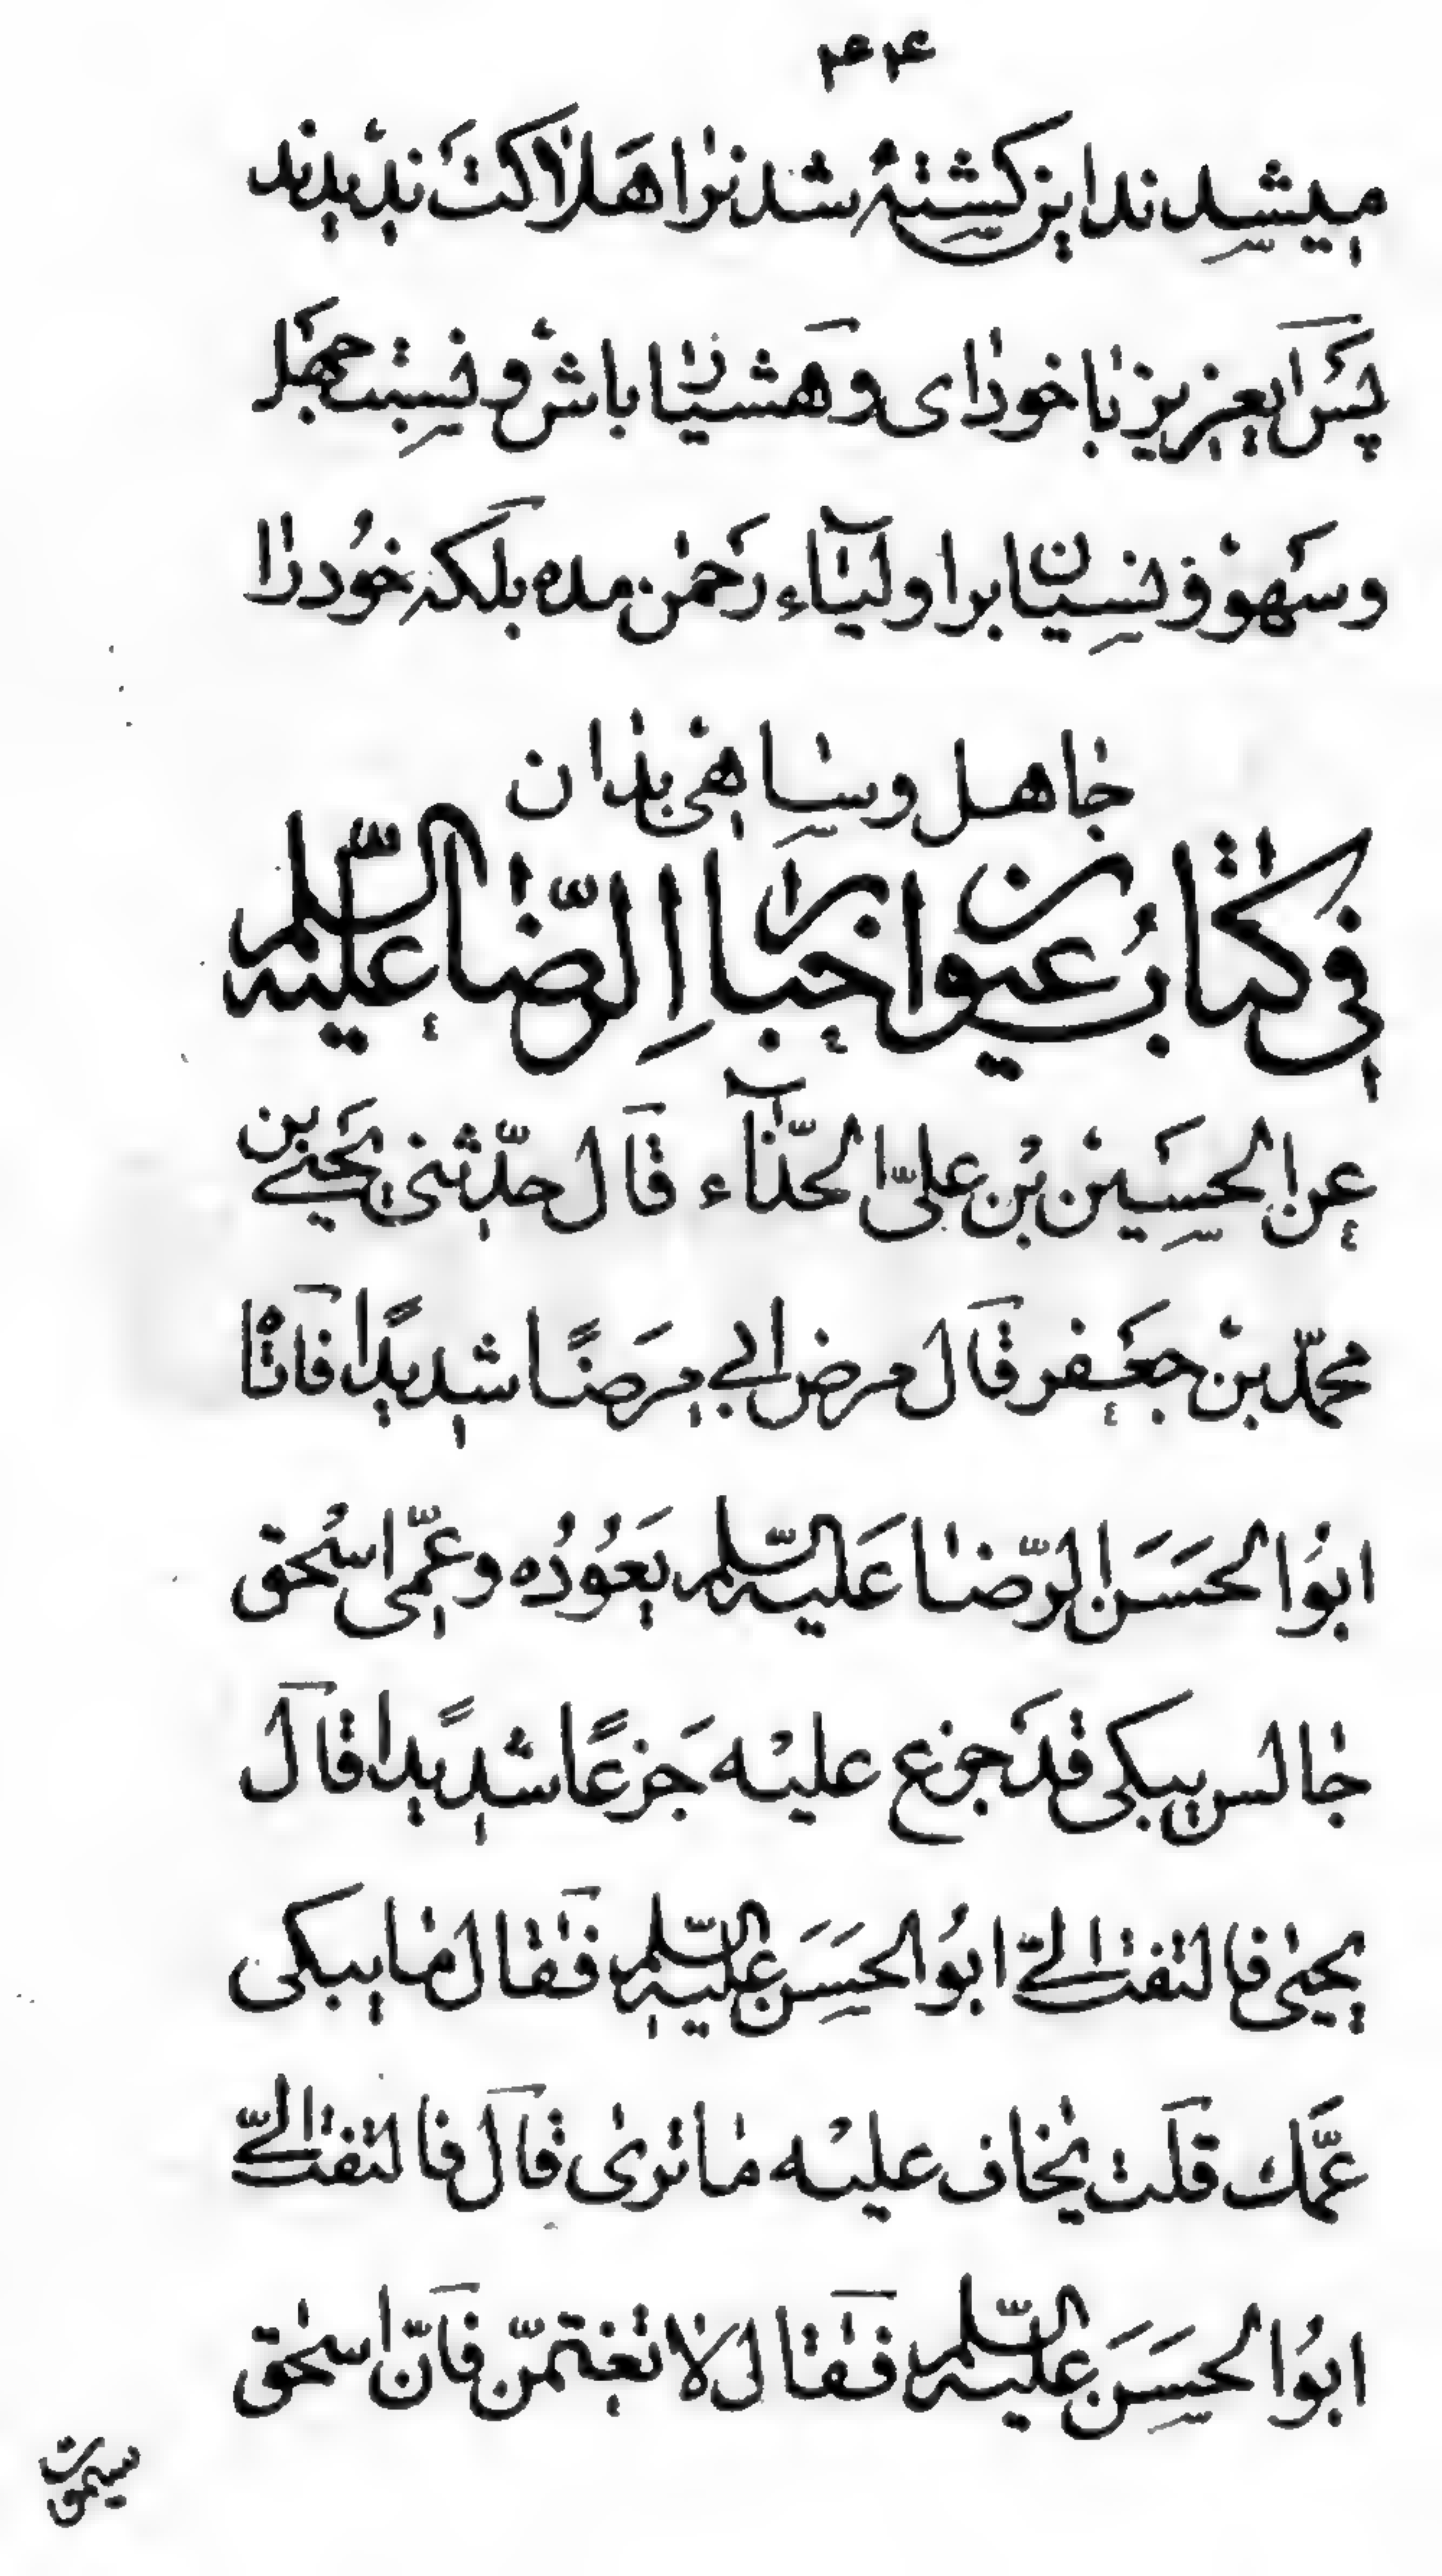 ۴۴
میشدند این کشتهٔ شدنرا هلاکت ندیدند
پس ایعزیز باخودای و هشیار باش و نسبت جهل
و سَهو و نسیان براولیآء رَحمٰن مده بلکه خُود را
جاهل و ساهی بدان
فی کتابُ عیون اخبار الرّضا علیه السّلم
عن الحسِین بْن علیّ الحذّآء قال حدّثنی یَحییٰ بن
محمّد بنْ جَعفر قَال مرض ابی مرَضًا شدیدًا فاَتٰا
ابوُا الحَسَن الرّضا عَلیه السّلم یَعُودُه و عمّی اسحٰق
جالس یبکی قدَ جزع علیْه جَزعًا شدیدًا قاَل
یحیٰی فالتفت الیّ ابوُا الحَسَن علیه السّلم فَقال مایبکی
عمَّک قلَت یخاف علیْه ماتریٰ قاَل فالتفت الیّ
ابوُا الحسَن علیه السّلم فَقال لاتغتمّن فاَنّ اسحٰق
سیموت